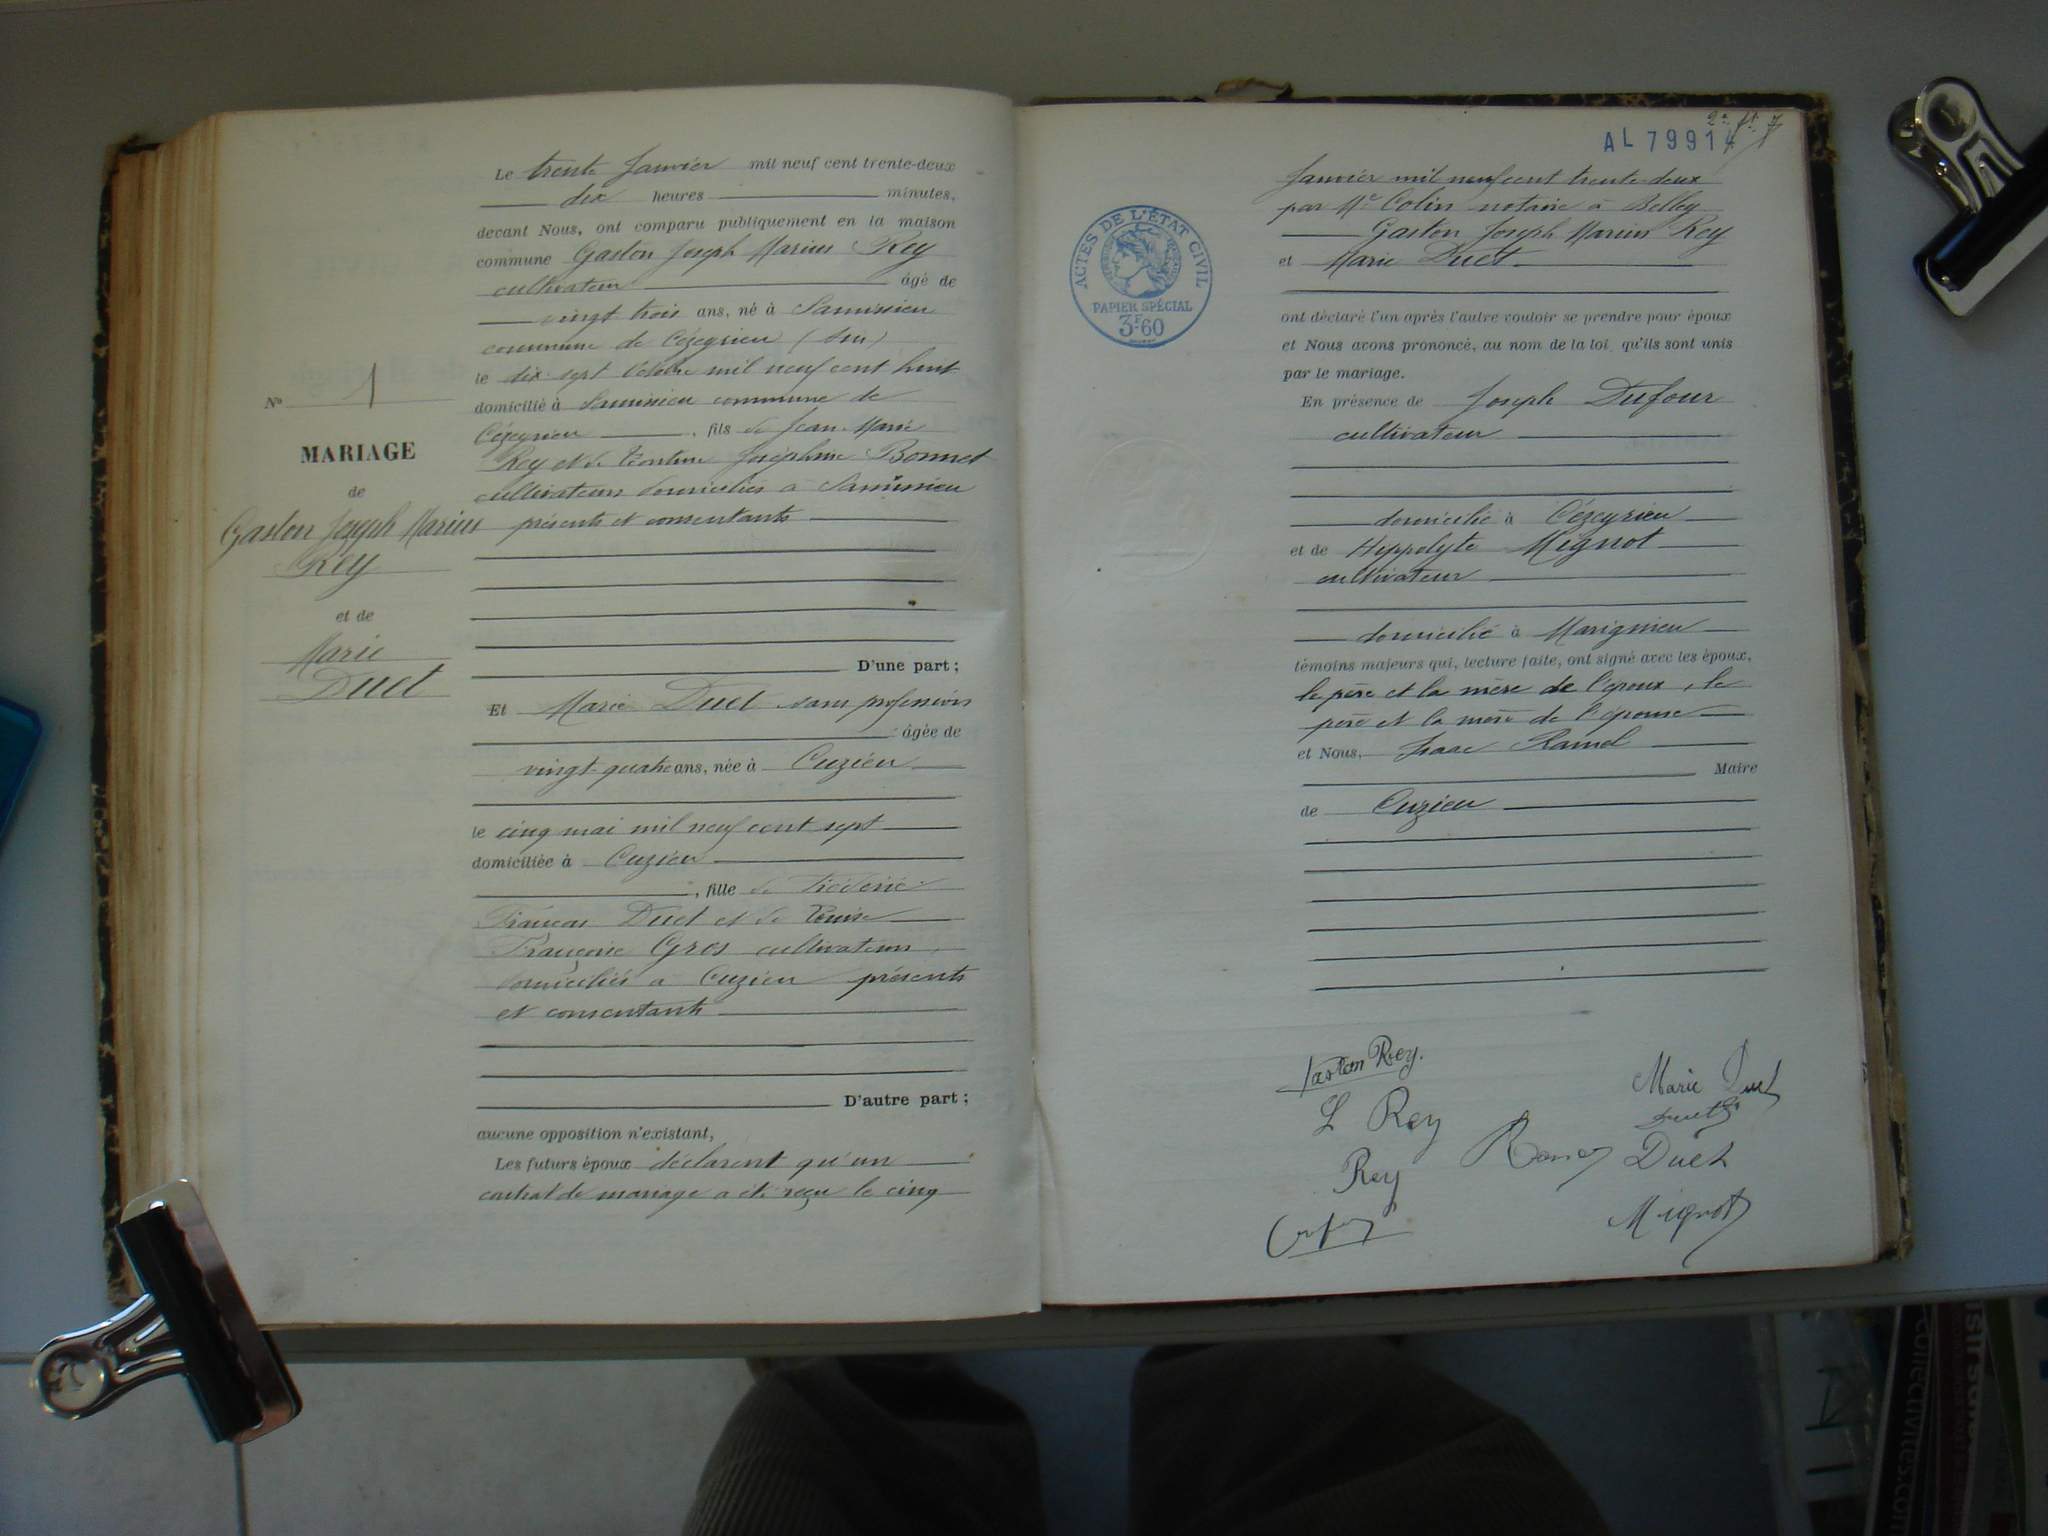 Le trente Janvier mil neuf cent trente-deux
dix heures minutes,
devant Nous, ont comparu publiquement en la maison
commune Gaston Joseph Marius Rey
cultivateur âgé de
vingt trois ans, né à
commune de Cézeyrieu
le dix sept Octobre mil neuf cent huit
domicilié à commune de
Cézeyrieu, fils de Jean-Marie
Rey et de Joséphine Bonnet
cultivateurs domiciliés à
présents et consentants
D'une part ;
Et Marie Duet sans profession
âgée de
vingt-quatre ans, née à Cuzieu
le cinq mai mil neuf cent sept
domiciliée à Cuzieu
, fille de Frédéric
François Duet et de Louise
Françoise Gros cultivateurs,
domiciliés à Cuzieu présents
et consentants
D'autre part ;
aucune opposition n'existant,
Les futurs époux déclarent qu'un
contrat de mariage a été reçu le cinq
N° 1
MARIAGE
de
Gaston Joseph Marius
Rey
et de
Marie
Duet
AL 79914
ACTES DE L'ÉTAT CIVIL
PAPIER SPÉCIAL
3F60
Janvier mil neuf cent trente-deux
par Me Colin notaire à Belley
Gaston Joseph Marius Rey
et Marie Duet
ont déclaré l'un après l'autre vouloir se prendre pour époux
et Nous avons prononcé, au nom de la loi, qu'ils sont unis
par le mariage.
En présence de Joseph Dufour
cultivateur
domicilié à Cézeyrieu
et de Hippolyte Mignot
cultivateur
domicilié à Marignieu
témoins majeurs qui, lecture faite, ont signé avec les époux,
le père et la mère de l'époux, le
père et la mère de l'épouse
et Nous, Isaac Ramel
Maire
de Cuzieu
Gaston Rey.
Marie Duet
L Rey
Duet
Rey
Mignot
collectivites.com